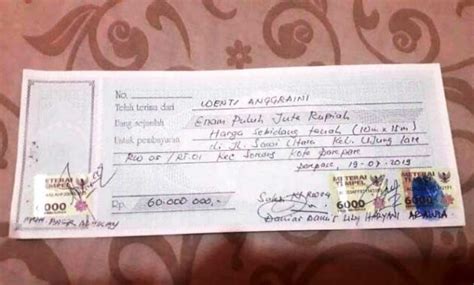 No.
Telah terima dari WENTI ANGGRAINI
Uang sejumlah Enam Puluh Juta Rupiah
Untuk pembayaran Harga Sebidang tanah (10m x 15m)
di Jl. Sawi Utara Kel. Ujung Lare
RW 05 / RT. 01 Kec Soreang Kota Parepare
Parepare 19-07-2019
METERAI TEMPEL
6000
Rp 60.000.000,-
Saksi
METERAI TEMPEL
6000
METERAI TEMPEL
6000
LILY HARYANI